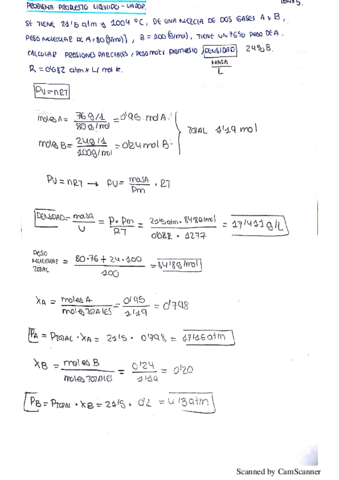 PROBLEMA PROPUESTO LÍQUIDO - VAPOR.
SE TIENE 21'5 atm y 1004 ºC, DE UNA MEZCLA DE DOS GASES A y B,
PESO MOLECULAR DE A = 80 (g/mol), B = 100 (g/mol), TIENE UN 76% PESO DE A.
CALCULAR PRESIONES PARCIALES, PESO MOLEC PROMEDIO, DENSIDAD 24% B.
R = 0'082 atm x L / mol K. MASA / L
PV = nRT
moles A = 76 g/1 / 80 g/mol = 0'95 mol A.
moles B = 24 g/1 / 100 g/mol = 0'24 mol B. TOTAL 1'19 mol
PV = nRT → PV = masa / Pm · RT
DENSIDAD = masa / V = P · Pm / RT = 21'5 atm · 84'8 g/mol / 0'082 · 1277 = 17'411 g/L
PESO MOLECULAR TOTAL = 80 · 76 + 24 · 100 / 100 = 84'8 g/mol
XA = moles A / moles TOTALES = 0'95 / 1'19 = 0'798
PA = PTOTAL · XA = 21'5 · 0'798 = 17'16 atm
XB = moles B / moles TOTALES = 0'24 / 1'19 = 0'20
PB = PTOTAL · XB = 21'5 · 0'2 = 4'3 atm
Scanned by CamScanner